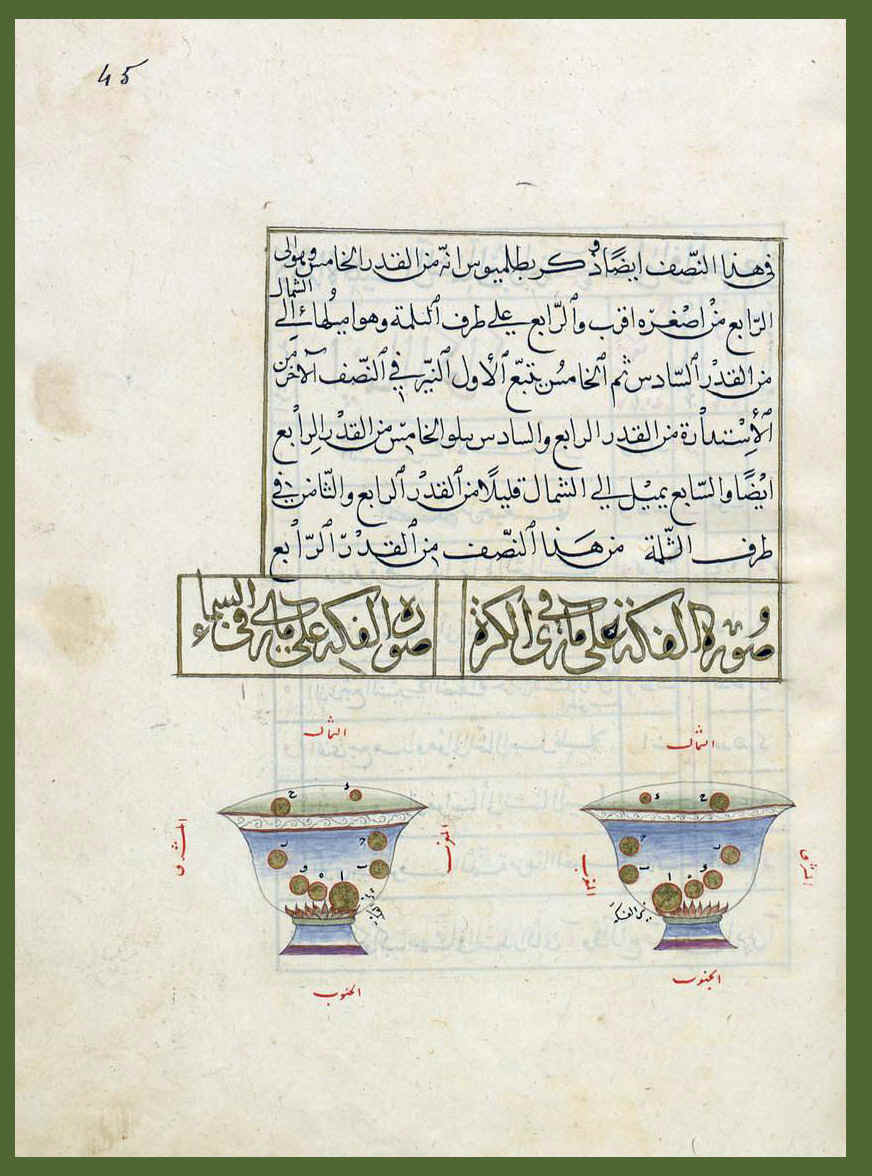 45
في هذا النّصف ايضًا وذكر بطلميوس انّه من القدر الخامس وهو الى
الرّابع من اصغره اقرب والرّابع على طرف الثلمة وهو اميلها الى
الشمال
من القدر السّادس ثم الخامس يتبع الاول النيّر في النّصف الآخر من
الاستدارة من القدر الرابع والسادس يتلو الخامس من القدر الرابع
ايضًا والسّابع يميل الى الشمال قليلًا من القدر الرابع والثّامن في
طرف الثّلمة من هذا النّصف من القدر الرّابع
وصورة الفكة على ما ترى في الكرة
صورة الفكه على ما يرى في السماء
الشمال
الشمال
المشرق
المغرب
المغرب
الشرق
ح
ء
ء
ح
ج
ب
و
ه
ا
ج
ب
ا
ه
و
نير الفكه
الجنوب
الجنوب